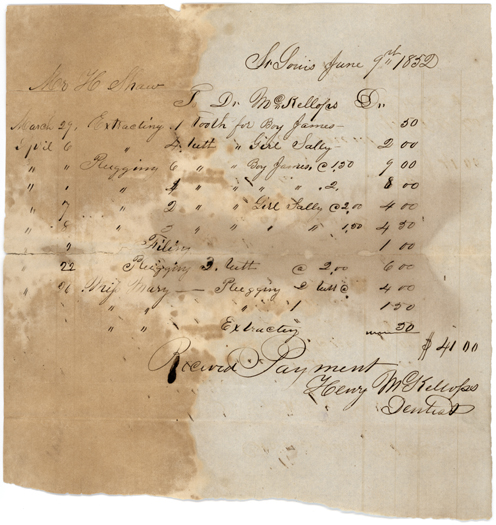 St Louis June 9th 1852
Mr H Shaw
To Dr McKellops Dr
March 29. Extracting 1 tooth for Boy James — 50
April 6 " 4 teeth " Girl Sally 2 00
" " Plugging 6 " " Boy James @ 1,50 9 00
" " " 4 " " " " 2. 8 00
" 7 " 2 " " Girl Sally @ 2,00 4 00
" 8 " 3 " " " " 1,50 4 50
" 9 Filing 1 00
" 22 Plugging 3. teeth @ 2,00 6 00
" 26 Mary — Plugging 2 teeth @ 4 00
" " " " 1 1 50
Extracting 50
$ 41 00
Received Payment
Henry McKellops
Dentist